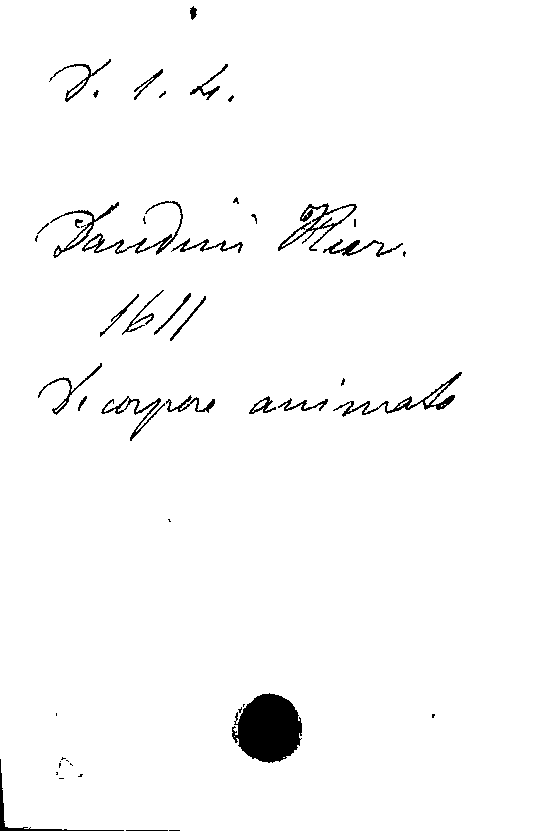 D. 1. 4.
Dandini Hier.
1611
De corpore animato